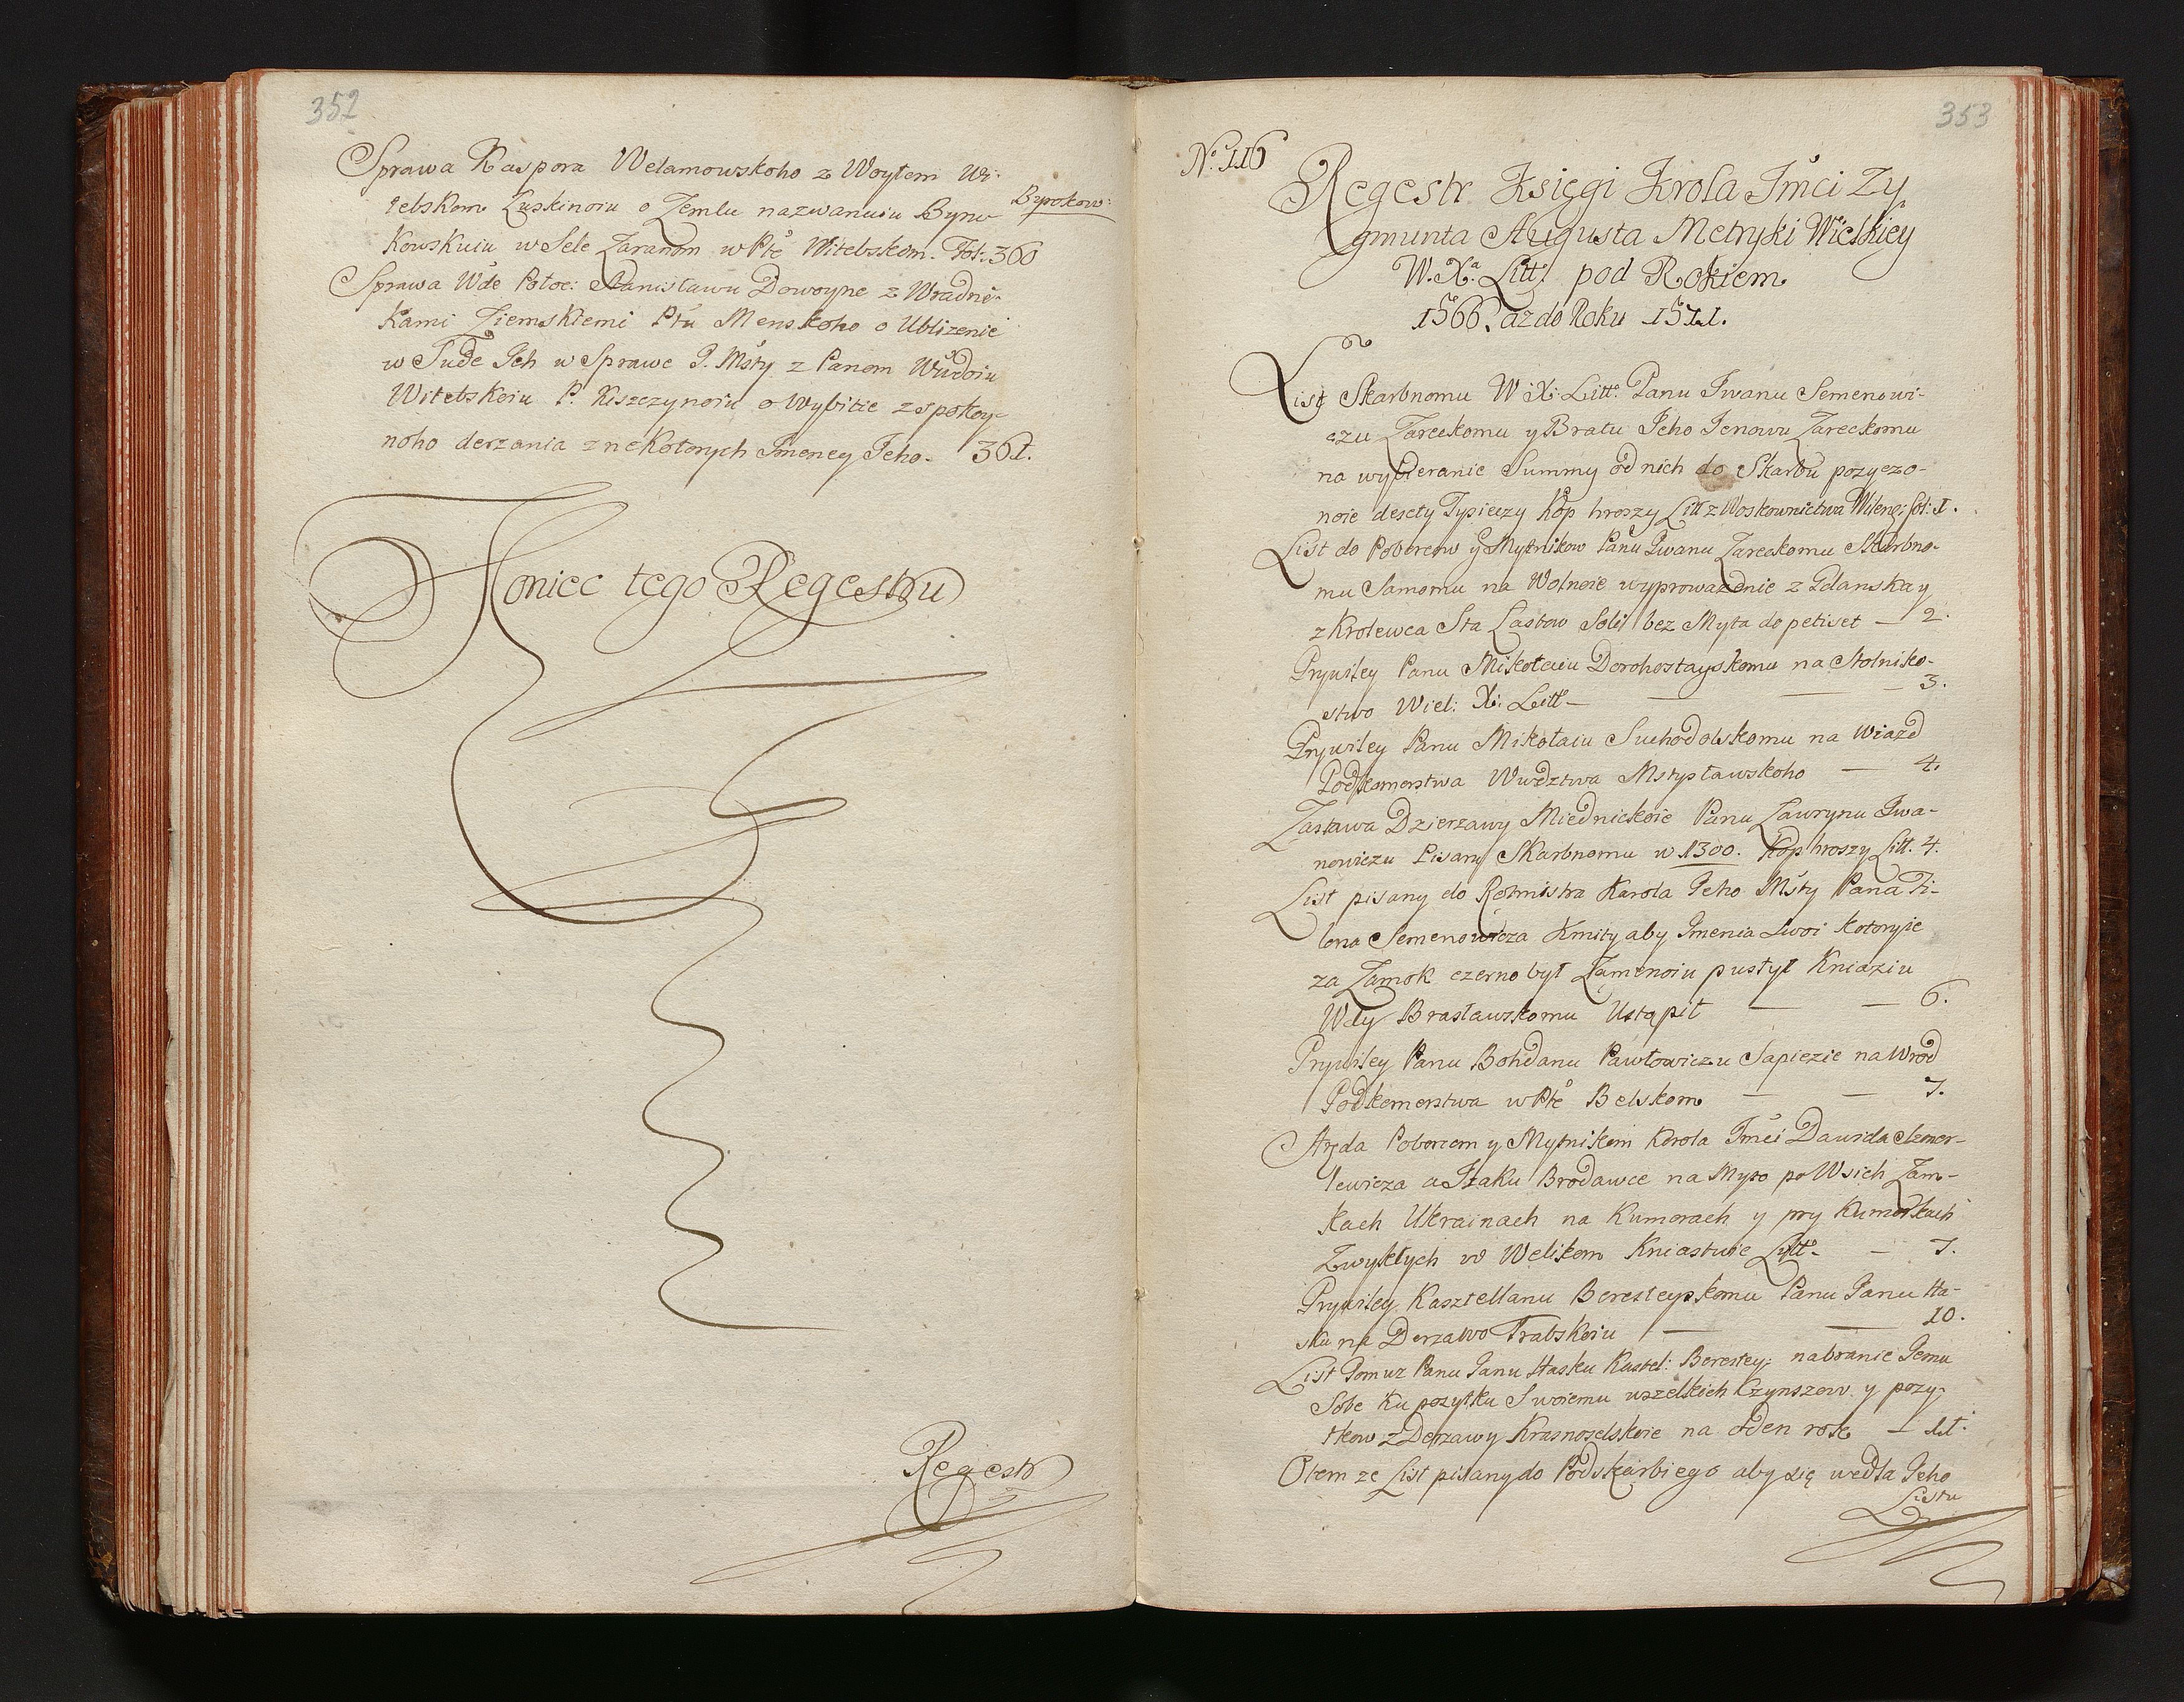 352
Sprawa Kaspora Welamowskoho z Woytem Wi-
tebskom Łuskinoiu o Zemlu nazwanuiu Bynu- Bypokow:
kowskuiu w Sele Zaranom w Ptě Witebskom. Fol: 360
Sprawa Wde Połoc: Stanisławu Dowoyne z Wradni-
kami Ziemskiemi Ptu Menskoho o Ublizenie
w Sude Ich w Sprawe J. Msty z Panom Wudoiu
Witebskoiu P. Kiszczynoiu o Wybitie z spokoy-
noho derzania z nekotorych Imeney Jeho - 361.
Koniec tego Regestru
Regestr
353
No. 116
Regestr Księgi Krola Jmci Zy
gmunta Augusta Metryki Wielkiey
W. Xa. Litt. pod Rokiem
1566. az do Roku 1571.
List Skarbnomu W: X: Litt: Panu Iwanu Semenowi-
czu Zareckomu y Bratu Jeho Zenowu Zareckomu
na wybieranie Summy od nich do Skarbu pozyczo-
noie desety Tysieczy Kop hroszy Litt z Woskownictwa Wilens: fol: 1.
List do Poborcow y Mytnikow Panu Iwanu Zareckomu Skarbno-
mu Samomu na Wolnoie wyprowazenie z Gdanska y
z Krolewca Sta Lastow Soli bez Myta do petiset — 2.
Prywiley Panu Mikołaiu Dorohostayskomu na Stolniko-
stwo Wiel: X: Litt — — — 3.
Prywiley Panu Mikołaiu Suchodolskomu na Wiazd
Podkomorstwa Wudztwa Mstysławskoho — 4.
Zastawa Dzierzawy Miednickoie Panu Ławrynu Iwa-
nowiczu Pisary Skarbnomu w 1300. Kop hroszy Litt. 4.
List pisany do Rotmistra Karola Jeho Msty Pana Fi-
lona Semenowicza Kmity aby Imenia Swoi kotoryie
za Zamok czernobył Zamenoiu pustył Kniaziu
Wdy Brasławskomu Ustąpił — — 6.
Prywiley Panu Bohdanu Pawłowiczu Sapiezie na Wrod
Podkomorstwa w Ptě Belskom — — 7.
Aręda Poborcom y Mytnikom Korola Jmci Dawida Szmer-
lewicza a Izaku Brodawce na Myto po Wsich Zam-
kach Ukrainach na Kumorach y pry Kumorkach
Zwykłych w Welikom Kniastwie Litt. — 7.
Prywiley Kasztellanu Beresteyskomu Panu Janu Ha-
sku na Derzawo Trabskoiu — — 10.
List Jomuz Panu Janu Hasku Kastel: Berestey: na branie Jemu
Sobe ku pozytku Swoiemu wszelkich Czynszow y pozy-
tkow z Derzawy Krasnoselskoie na oden rok — 11.
Otem ze List pisany do Podskarbiego aby się wedla Jeho
Listu